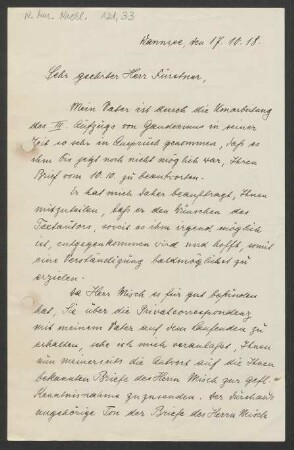 N. hum. Nachl. 121,33
Wannsee, den 17.10.18.
Sehr geehrter Herr Fürstner,
Mein Vater ist durch die Umarbeitung
des III. Aufzugs von Gaudeamus in seiner
Zeit so sehr in Anspruch genommen, daß es
ihm bis jetzt noch nicht möglich war, Ihren
Brief vom 10.10. zu beantworten.
Er hat mich daher beauftragt, Ihnen
mitzuteilen, daß er den Wünschen des
Textautors, soweit es ihm irgend möglich
ist, entgegenkommen wird und hofft, somit
eine Verständigung baldmöglichst zu
erzielen.
Da Herr Misch es für gut befunden
hat, Sie über die Privatcorrespondenz
mit meinem Vater auf dem Laufenden zu
erhalten, sehe ich mich veranlaßt, Ihnen
nun meinerseits die Antwort auf die Ihnen
bekannten Briefe des Herrn Misch zur gefl.
Kenntnisnahme zuzusenden. Der durchaus
ungehörige Ton der Briefe des Herrn Misch